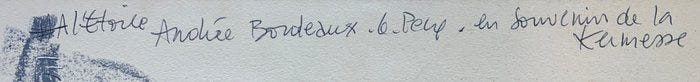 A l'Etoile Andrée Bordeaux . 6. Peuf . en Souvenir de la
Kermesse